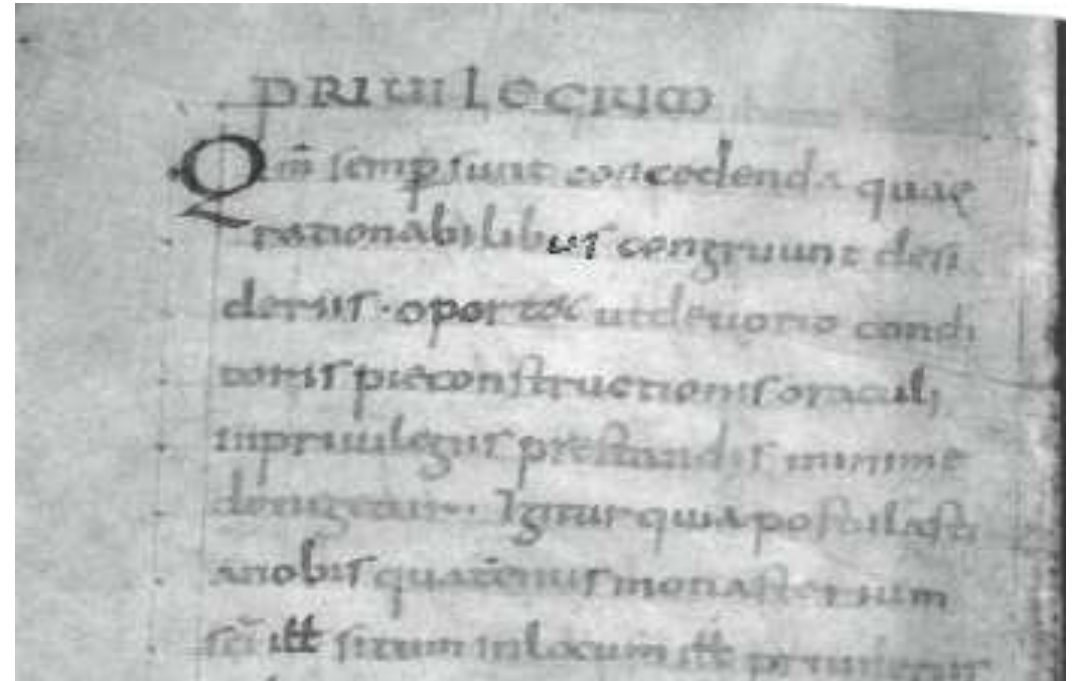 PRIUILEGIUM
Qm̄ semp sunt concedenda quae
rationabilibus congruunt desi
deriis · oportet ut deuotio condi
toris pie constructionis oraculi
in priuilegiis prestandis minime
denegetur. Igitur quia postulasti
a nobis quatenus monasterium
sc̄i ill situm in locum ill priuilegiis